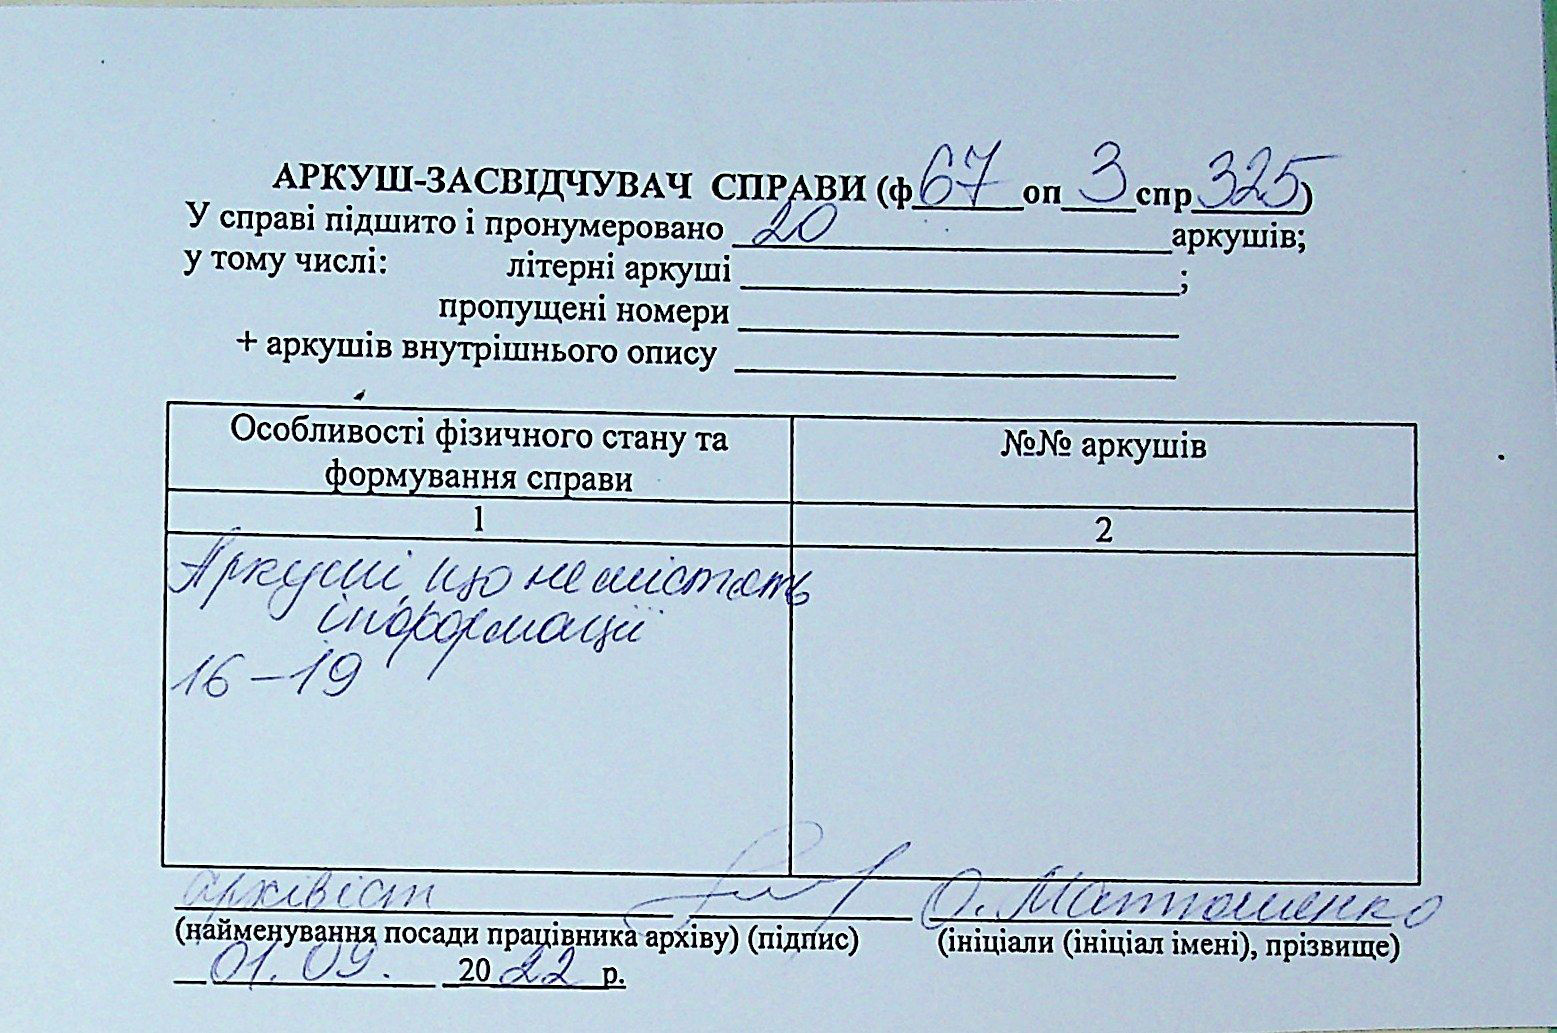 АРКУШ-ЗАСВІДЧУВАЧ СПРАВИ (ф 67 оп 3 спр 325)
У справі підшито і пронумеровано 20 аркушів;
у тому числі: літерні аркуші ;
пропущені номери
+ аркушів внутрішнього опису
Особливості фізичного стану та
формування справи
№№ аркушів
1
2
Аркуші, що не містять
інформації
16-19
архівіст О. Матюшенко
(найменування посади працівника архіву) (підпис) (ініціали (ініціал імені), прізвище)
01.09. 2022 р.